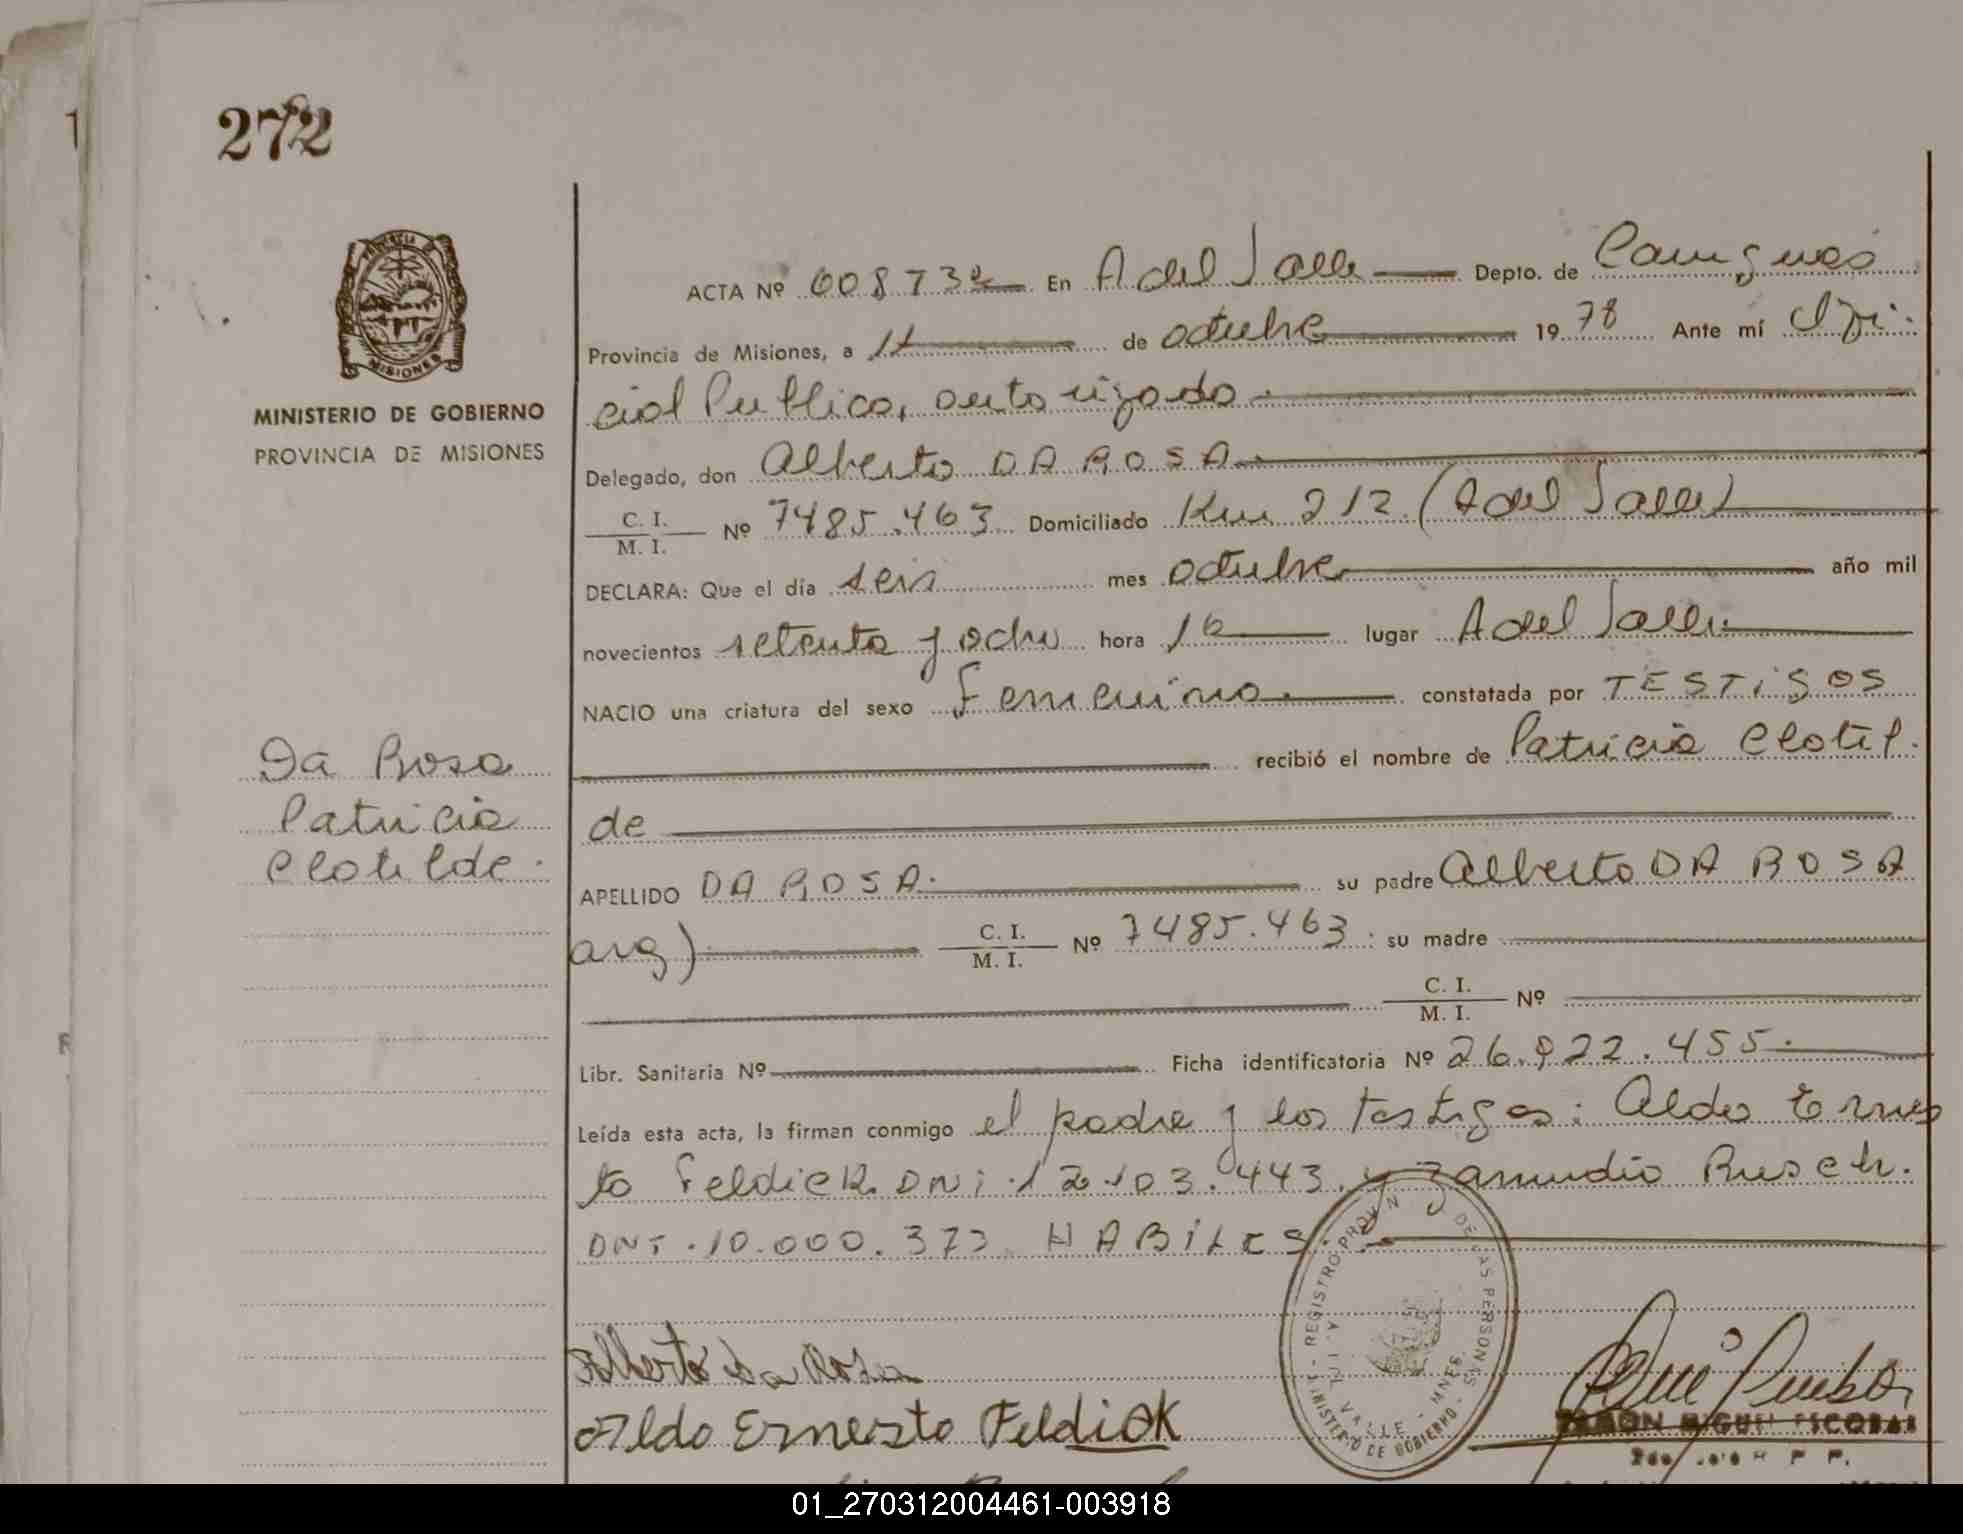 272
PROVINCIA DE
MISIONES
MINISTERIO DE GOBIERNO
PROVINCIA DE MISIONES
ACTA Nº 008732 En A del Valle Depto. de Cainguás
Provincia de Misiones, a 11 de octubre 1978 Ante mí Ofi-
cial Publico, autorizado.
Delegado, don Alberto DA ROSA.
C. I.
M. I. Nº 7485.463 Domiciliado Km 212 (A del Valle)
DECLARA: Que el día seis mes octubre año mil
novecientos setenta y ocho hora 16 lugar A del Valle.
NACIO una criatura del sexo Femenino. constatada por TESTiGOS
recibió el nombre de Patricia Clotil-
de
Da Rosa
Patricia
Clotilde.
APELLIDO DA ROSA. su padre Alberto DA ROSA
arg) C. I.
M. I. Nº 7485.463. su madre
C. I.
M. I. Nº
Libr. Sanitaria Nº Ficha identificatoria Nº 26.822.455.
Leída esta acta, la firman conmigo el padre y los testigos: Aldo Ernes
to Feldick DNi. 12.103.443. y Zamudio Rusch.
DNI. 10.000.373 HABiLES.
REGISTRO PROVIN DE LAS PERSONAS
MINISTERIO DE GOBIERNO
VALLE - MNES.
Alberto da Rosa
Aldo Ernesto Feldick
RAMON MIGUEL ESCOBAR
01_270312004461-003918